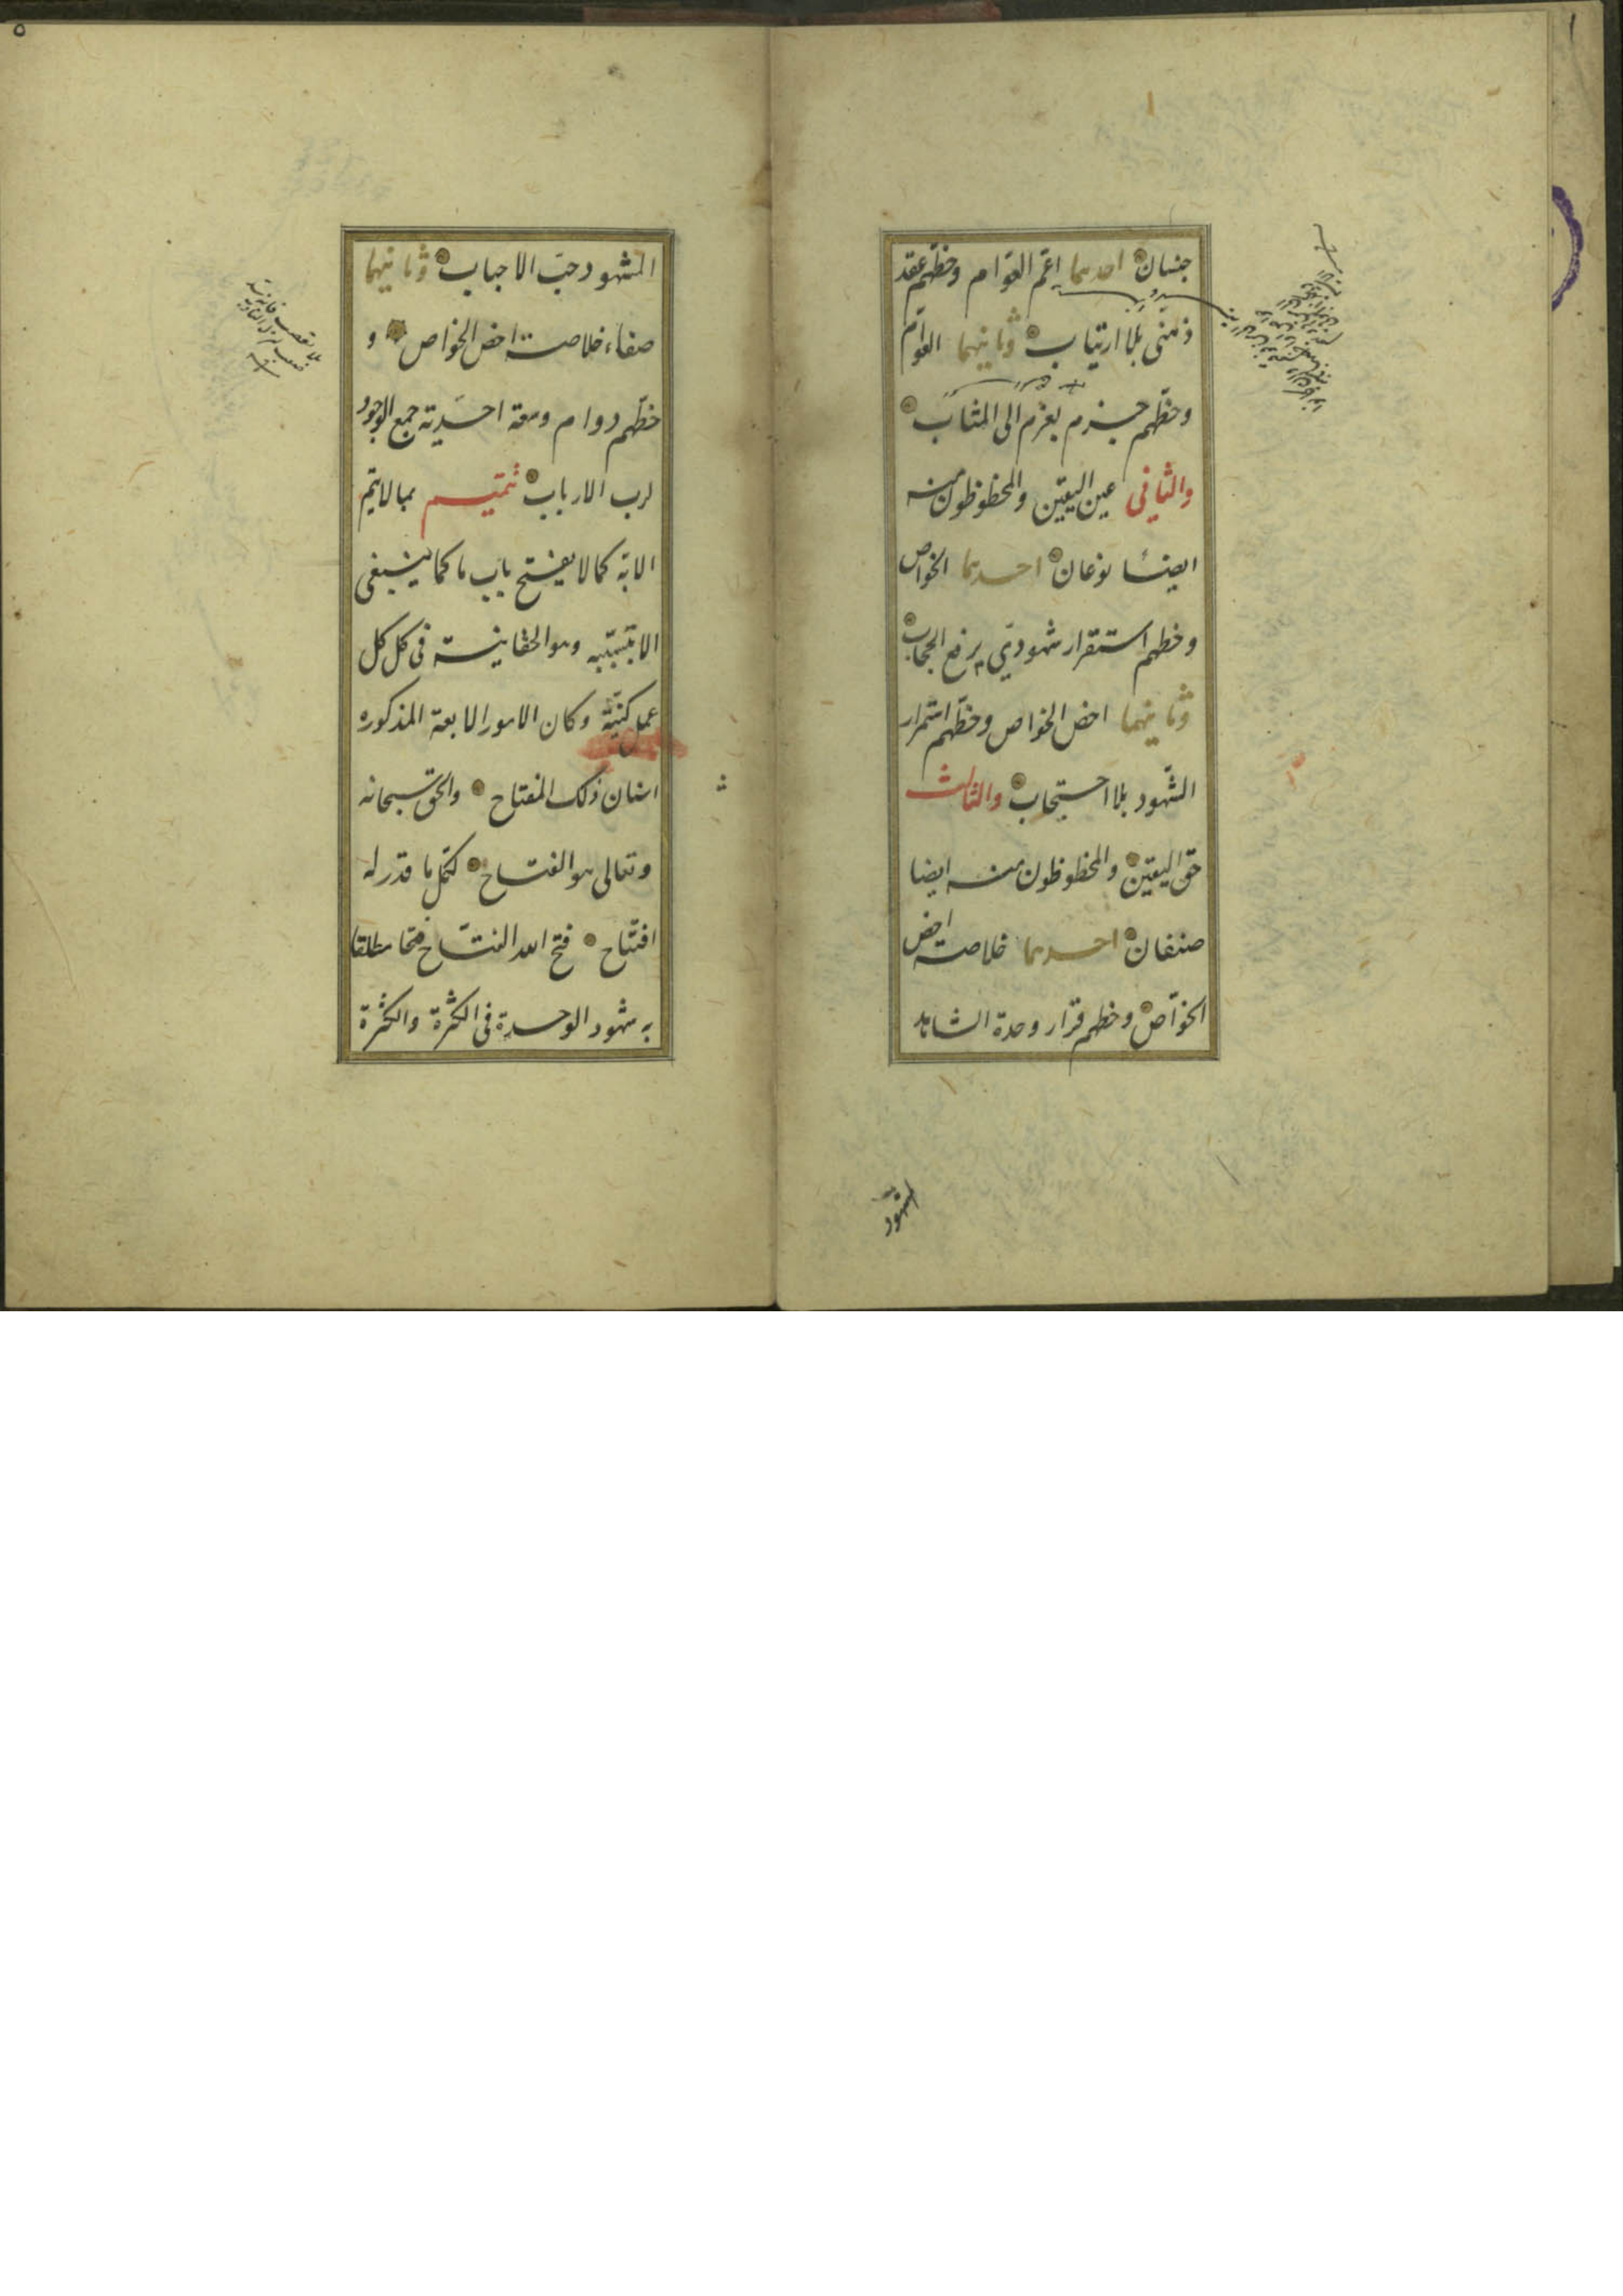 جنسان احدهما اعم العوام وحظهم عقد
ذهنی بلا ارتیاب وثانیهما العوام
وحظهم جزم بعزم الی المثاب
والثانی عین الیقین والمحظوظون منه
ایضا نوعان احدهما الخواص
وحظهم استقرار شهودی برفع الحجاب
وثانیهما اخص الخواص وحظهم استمرار
الشهود بلا احتجاب والثالث
حق الیقین والمحظوظون منه ایضا
صنفان احدهما خلاصة اخص
الخواص وحظهم قرار وحدة الشاهد
الشهود
۵
المشهود حب الاحباب وثانیهما
صفاء خلاصة اخص الخواص و
حظهم دوام وسعة احدیة جمع الوجود
لرب الارباب تتمیم بما لا یتم
الا به کما لا یفتتح باب ما کما ینبغی
الا بتسببه وهو الحقانیة فی کل کل
عمل کنیة وکان الامور الاربعة المذکوره
اسنان ذلک المفتاح والحق سبحانه
وتعالی هو الفتاح لکل ما قدر له
افتتاح فتح الله الفتاح فتحا مطلقا
به شهود الوحدة فی الکثرة والکثرة